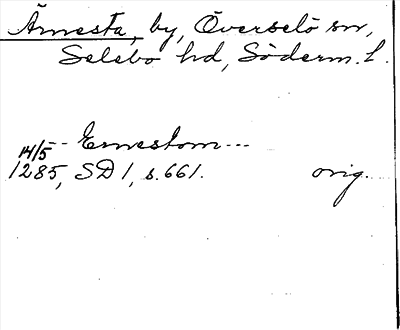 Ärnesta, by, Överselö sn,
Selebo hd, Söderm. L.
14/5 - Ernestom ---
1285, SD 1, s. 661. orig.